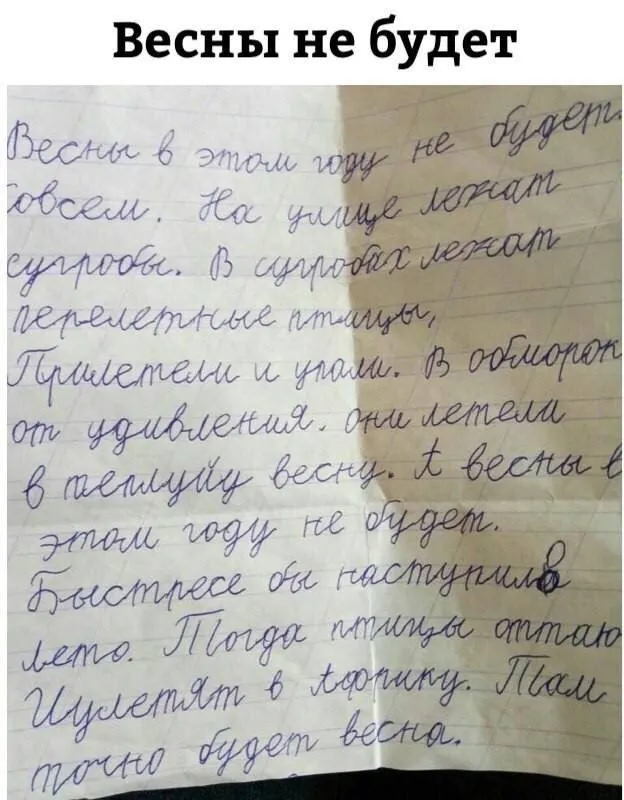 Весны не будет
Весны в этом году не будет.
Совсем. На улице лежат
сугробы. В сугробах лежат
перелетные птицы,
Прилетели и упали. В обморок
от удивления. они летели
в теплуйу весну. А весны в
этом году не будет.
Быстресе бы наступило
лето. Тогда птицы оттаю
Иулетят в Африку. Там
точно будет весна.